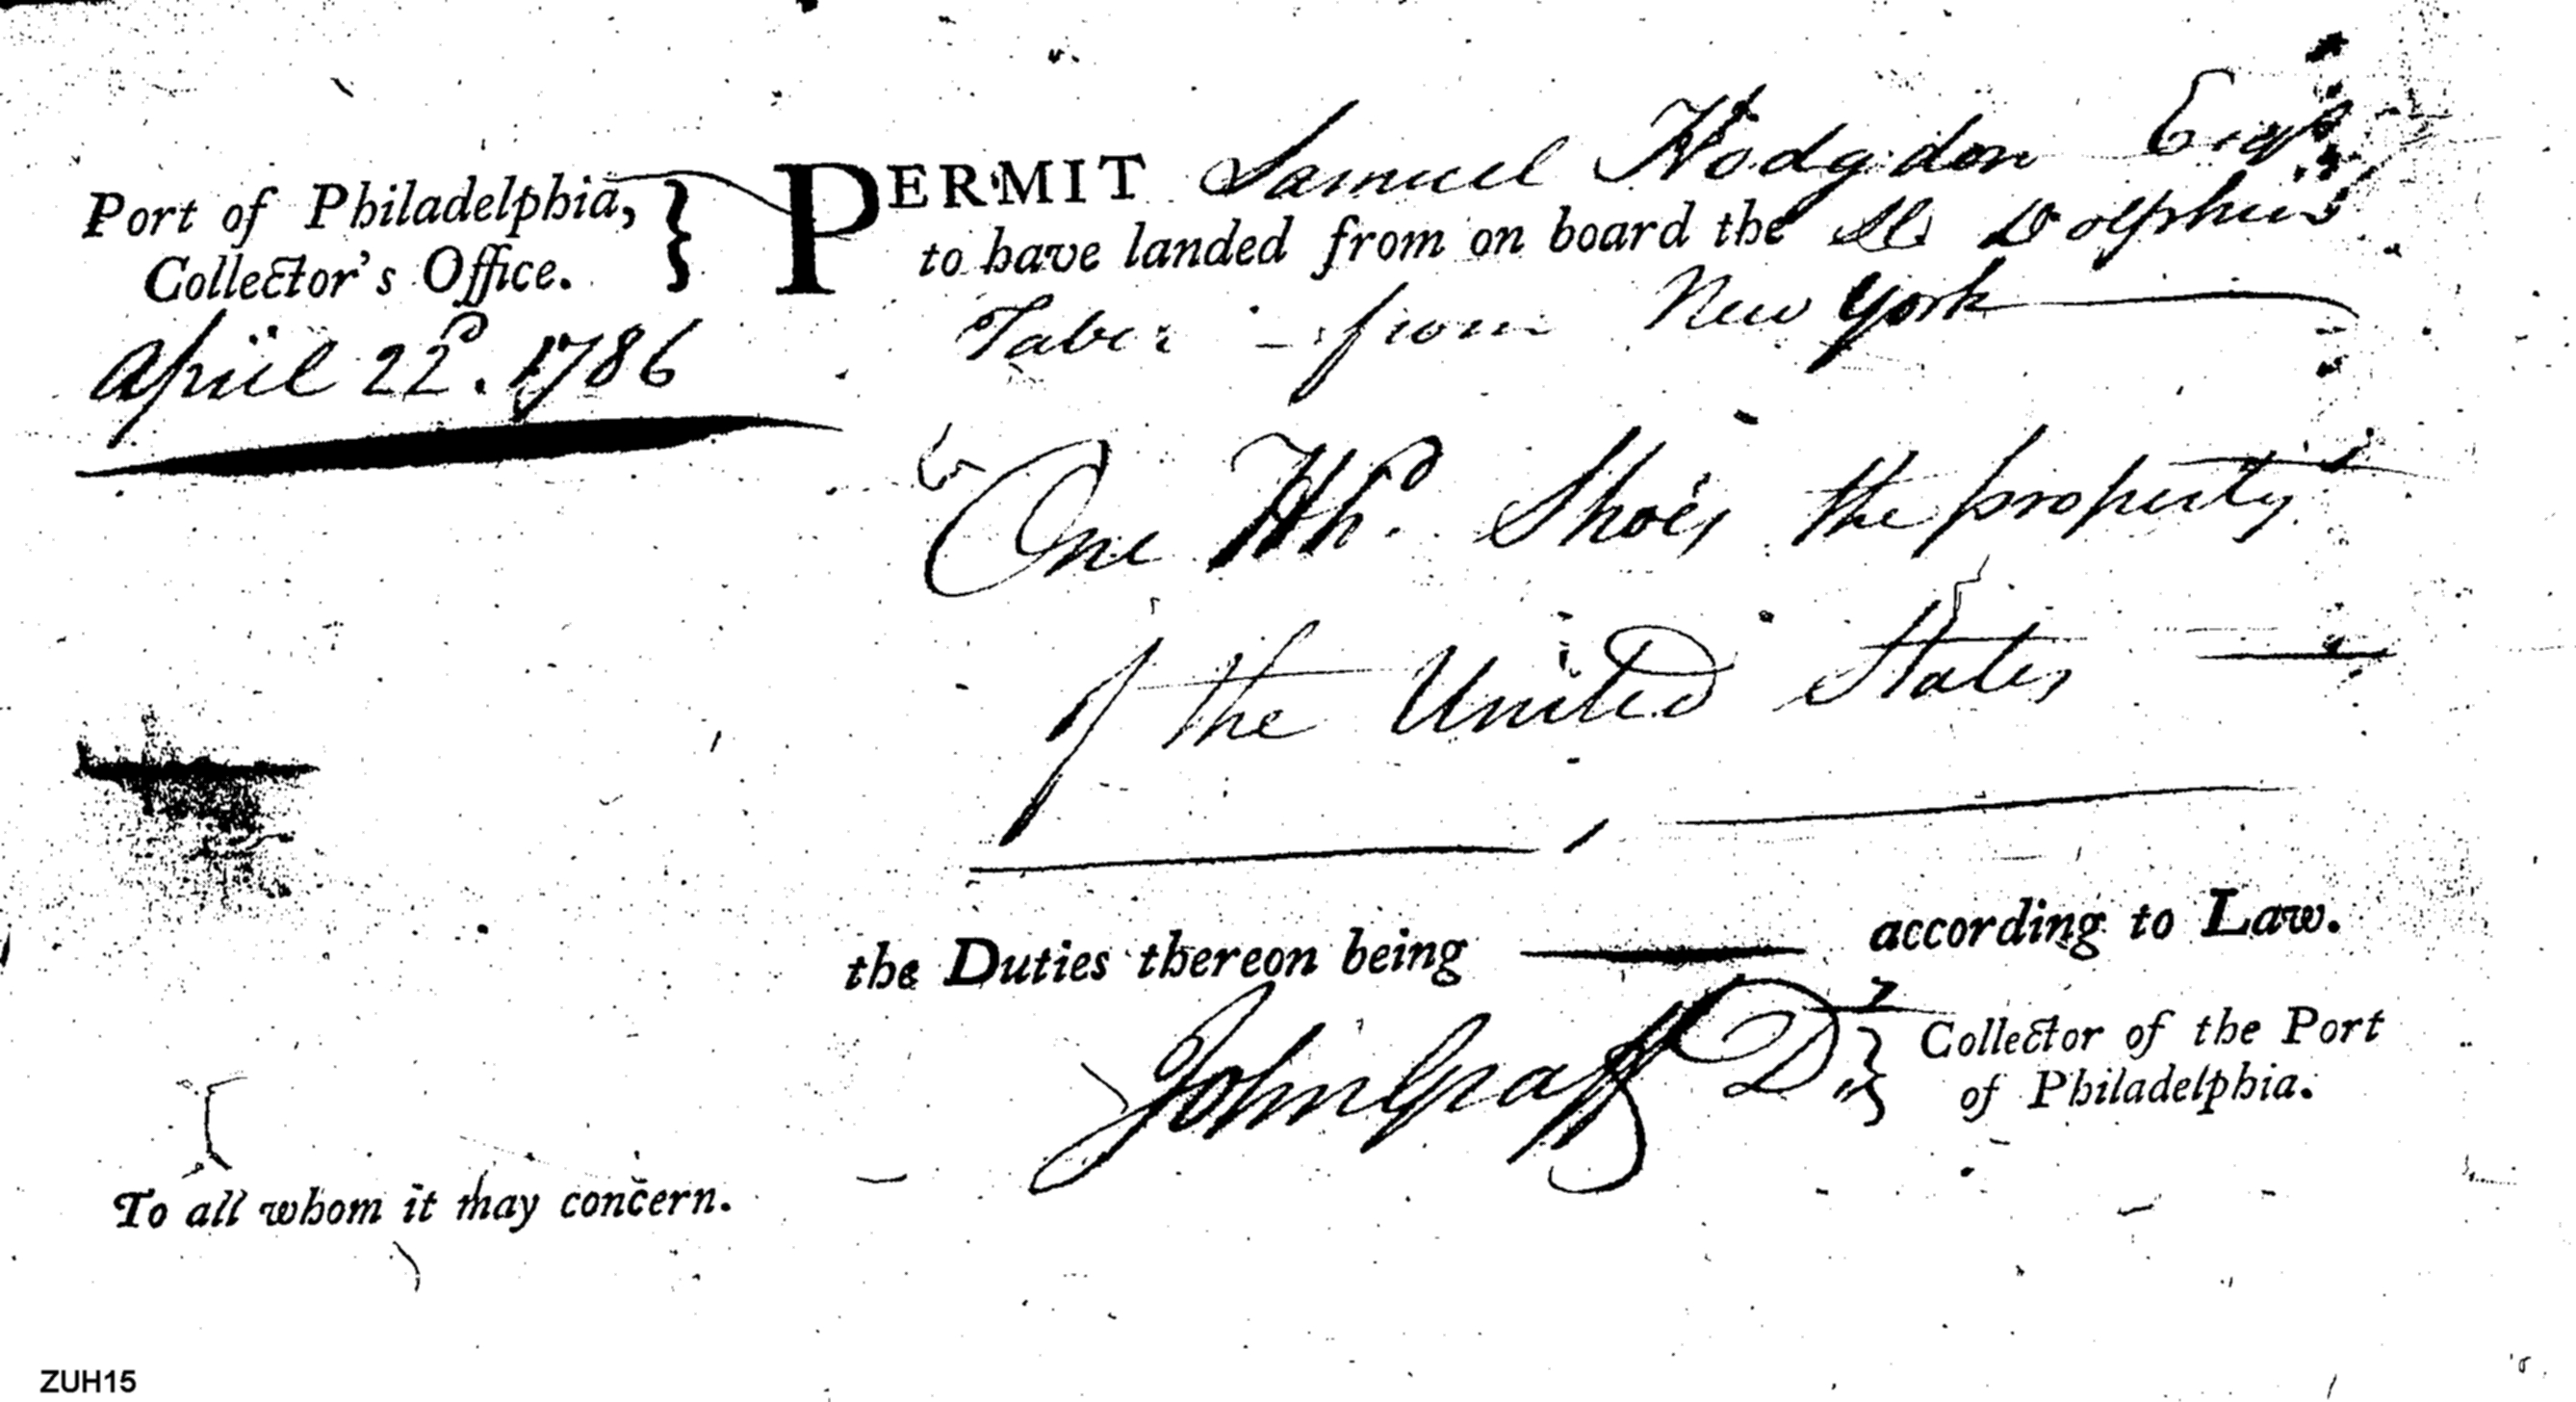 Port of Philadelphia,
Collector's Office.
April 22d. 1786
PERMIT Samuel Hodgdon Esqr
to have landed from on board the Sl. Dolphin
Taber - from New York
One Hhd. Shoes the property
of the United States
the Duties thereon being according to Law.
John Graff D.
Collector of the Port
of Philadelphia.
To all whom it may concern.
ZUH15